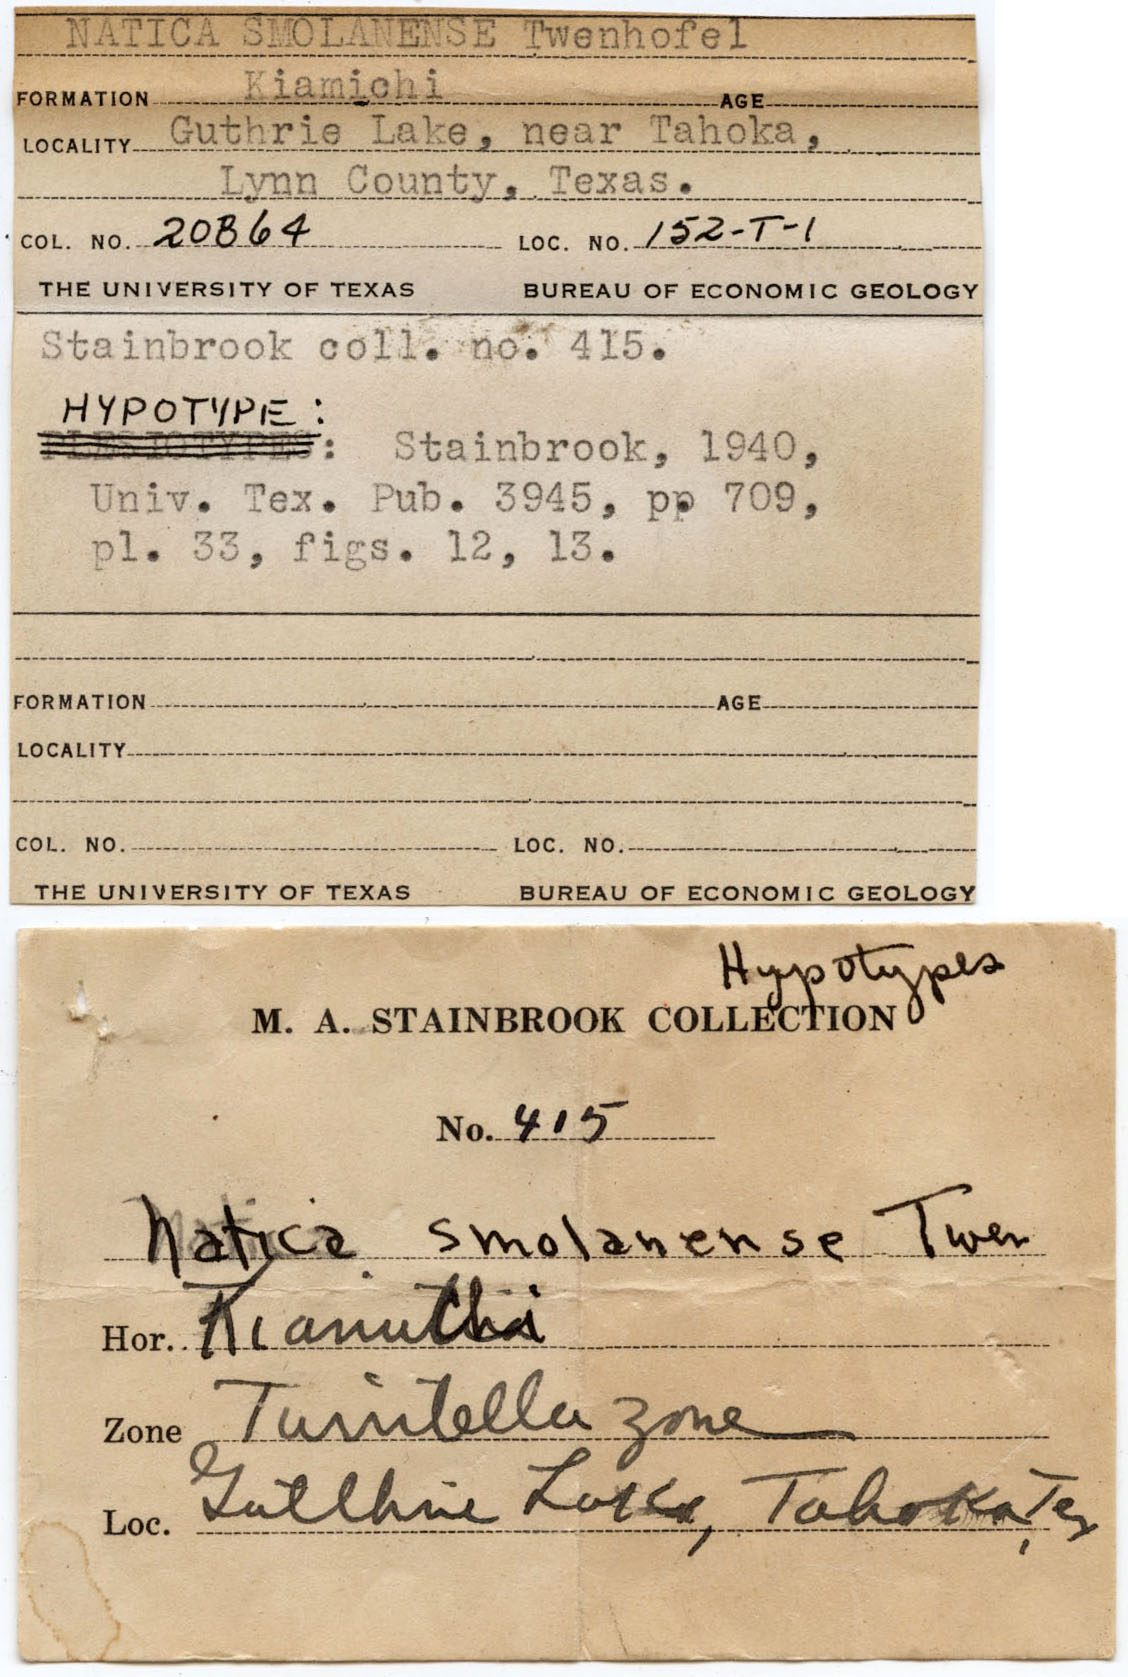 NATICA SMOLANENSE Twenhofel
FORMATION Kiamichi AGE
LOCALITY Guthrie Lake, near Tahoka,
Lynn County, Texas.
COL. NO. 20864 LOC. NO. 152-T-1
THE UNIVERSITY OF TEXAS BUREAU OF ECONOMIC GEOLOGY
Stainbrook coll. no. 415.
HYPOTYPE:
PLESIOTYPES: Stainbrook, 1940,
Univ. Tex. Pub. 3945, pp 709,
pl. 33, figs. 12, 13.
FORMATION AGE
LOCALITY
COL. NO. LOC. NO.
THE UNIVERSITY OF TEXAS BUREAU OF ECONOMIC GEOLOGY
Hypotypes
M. A. STAINBROOK COLLECTION
No. 415
Natica smolanense Twen
Hor. Kiamichi
Zone Turritella zone
Loc. Guthrie Lake, Tahoka, Tex